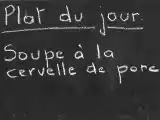 Plat du jour:
Soupe à la
cervelle de porc